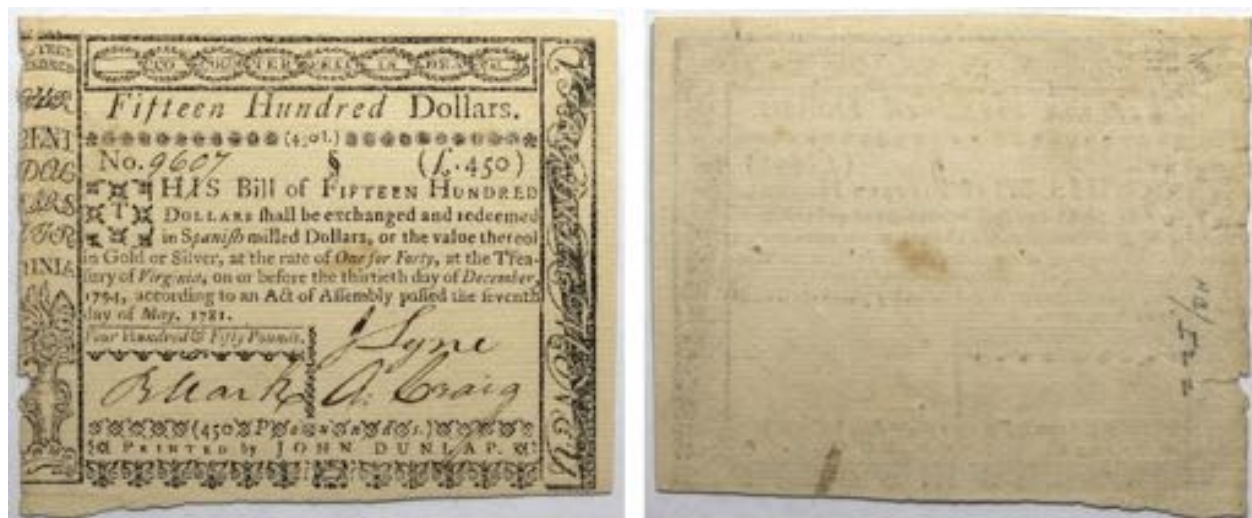 Fifteen Hundred Dollars.
(450l.)
No. 9607 § (£.450)
THIS Bill of FIFTEEN HUNDRED
DOLLARS ſhall be exchanged and redeemed
in Spaniſh milled Dollars, or the value thereof
in Gold or Silver, at the rate of One for Forty, at the Trea-
ſury of Virginia, on or before the thirtieth day of December,
1794, according to an Act of Aſſembly paſſed the ſeventh
day of May, 1781.
Four Hundred & Fifty Pounds.
J Lyne
A. Craig
(450 Pounds.)
PRINTED by JOHN DUNLAP.